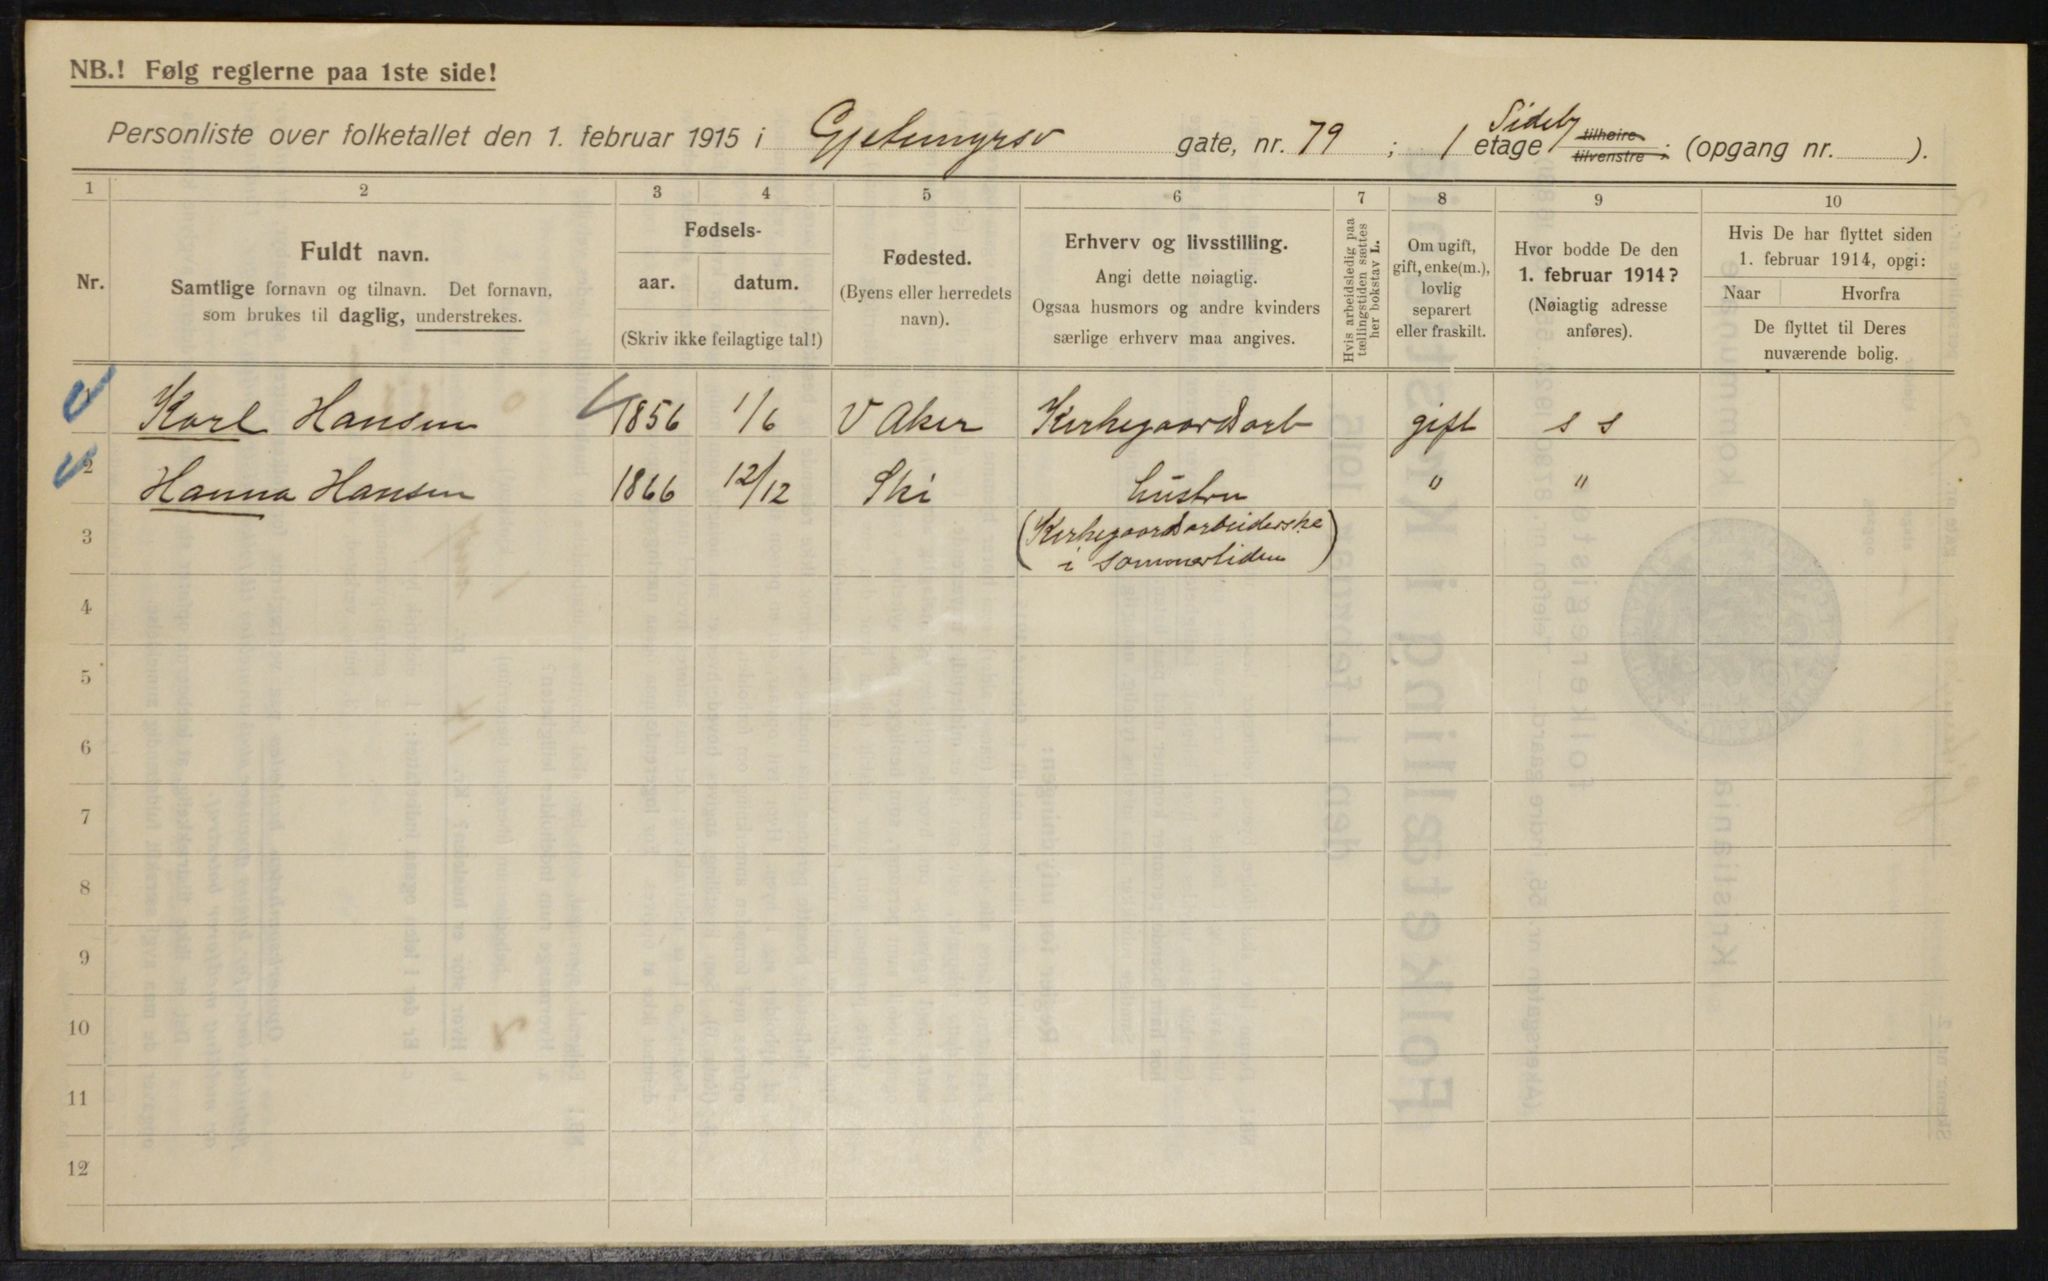 NB.! Følg reglerne paa 1ste side!
Personliste over folketallet den 1. februar 1915 i Gjetemyrsv gate, nr. 79 ; 1 etage Sideb tilhøire tilvenstre ; (opgang nr. ).
1 2 3 4 5 6 7 8 9 10
Nr.
Fuldt navn.
Samtlige fornavn og tilnavn. Det fornavn,
som brukes til daglig, understrekes.
Fødsels-
aar. datum.
(Skriv ikke feilagtige tal!)
Fødested.
(Byens eller herredets
navn).
Erhverv og livsstilling.
Angi dette nøiagtig.
Ogsaa husmors og andre kvinders
særlige erhverv maa angives.
Hvis arbeidsledig paa
tællingstiden sættes
her bokstav L.
Om ugift,
gift, enke(m.),
lovlig
separert
eller fraskilt.
Hvor bodde De den
1. februar 1914?
(Nøiagtig adresse
anføres).
Hvis De har flyttet siden
1. februar 1914, opgi:
Naar Hvorfra
De flyttet til Deres
nuværende bolig.
Karl Hansen 1856 1/6 V Aker Kirkegaardsarb gift s s
2 Hanna Hansen 1866 12/12 Ski hustru " "
3 (Kirkegaardsarbeiderske
i sommertiden)
4
5
6
7
8
9
10
11
12